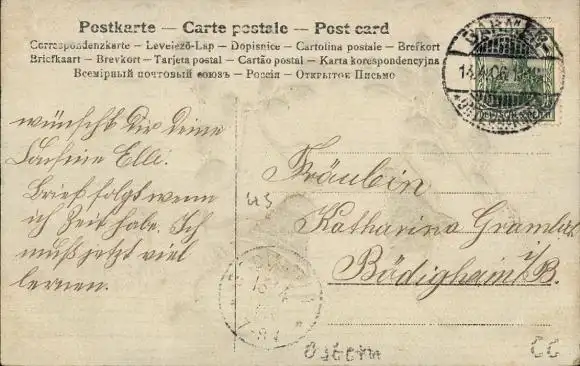 Postkarte — Carte postale — Post card
Correspondenzkarte – Levelező-Lap – Dopisnice – Cartolina postale – Brefkort
Briefkaart – Brevkort – Tarjeta postal – Cartão postal – Karta korespondencyjna
Всемірный почтовый союзъ – Россія – Открытое Письмо
wünscht Dir deine
Cousine Elli.
Brief folgt wenn
ich Zeit habe. Ich
muß jetzt viel
lernen.
Fräulein
Katharina Gramlich
Bödigheim i/B.
43